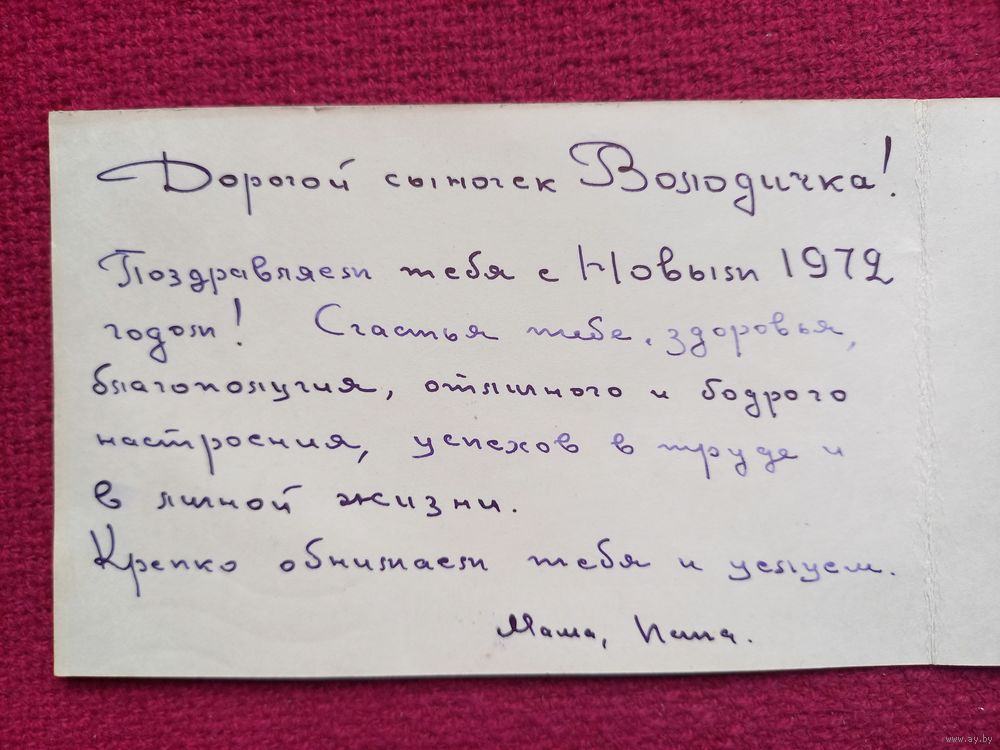 Дорогой сыночек Володичка!
Поздравляем тебя с Новым 1972
годом! Счастья тебе, здоровья,
благополучия, отличного и бодрого
настроения, успехов в труде и
в личной жизни.
Крепко обнимаем тебя и целуем.
Мама, Папа.
www.ay.by